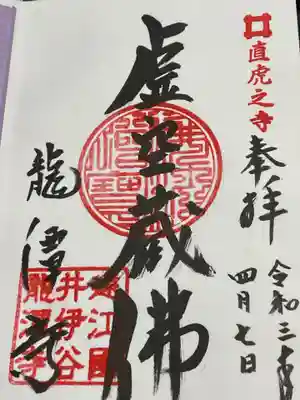 直虎之寺
奉拝
令和三年
四月七日
虚空蔵佛
龍潭寺
遠江國
井伊谷
龍潭寺